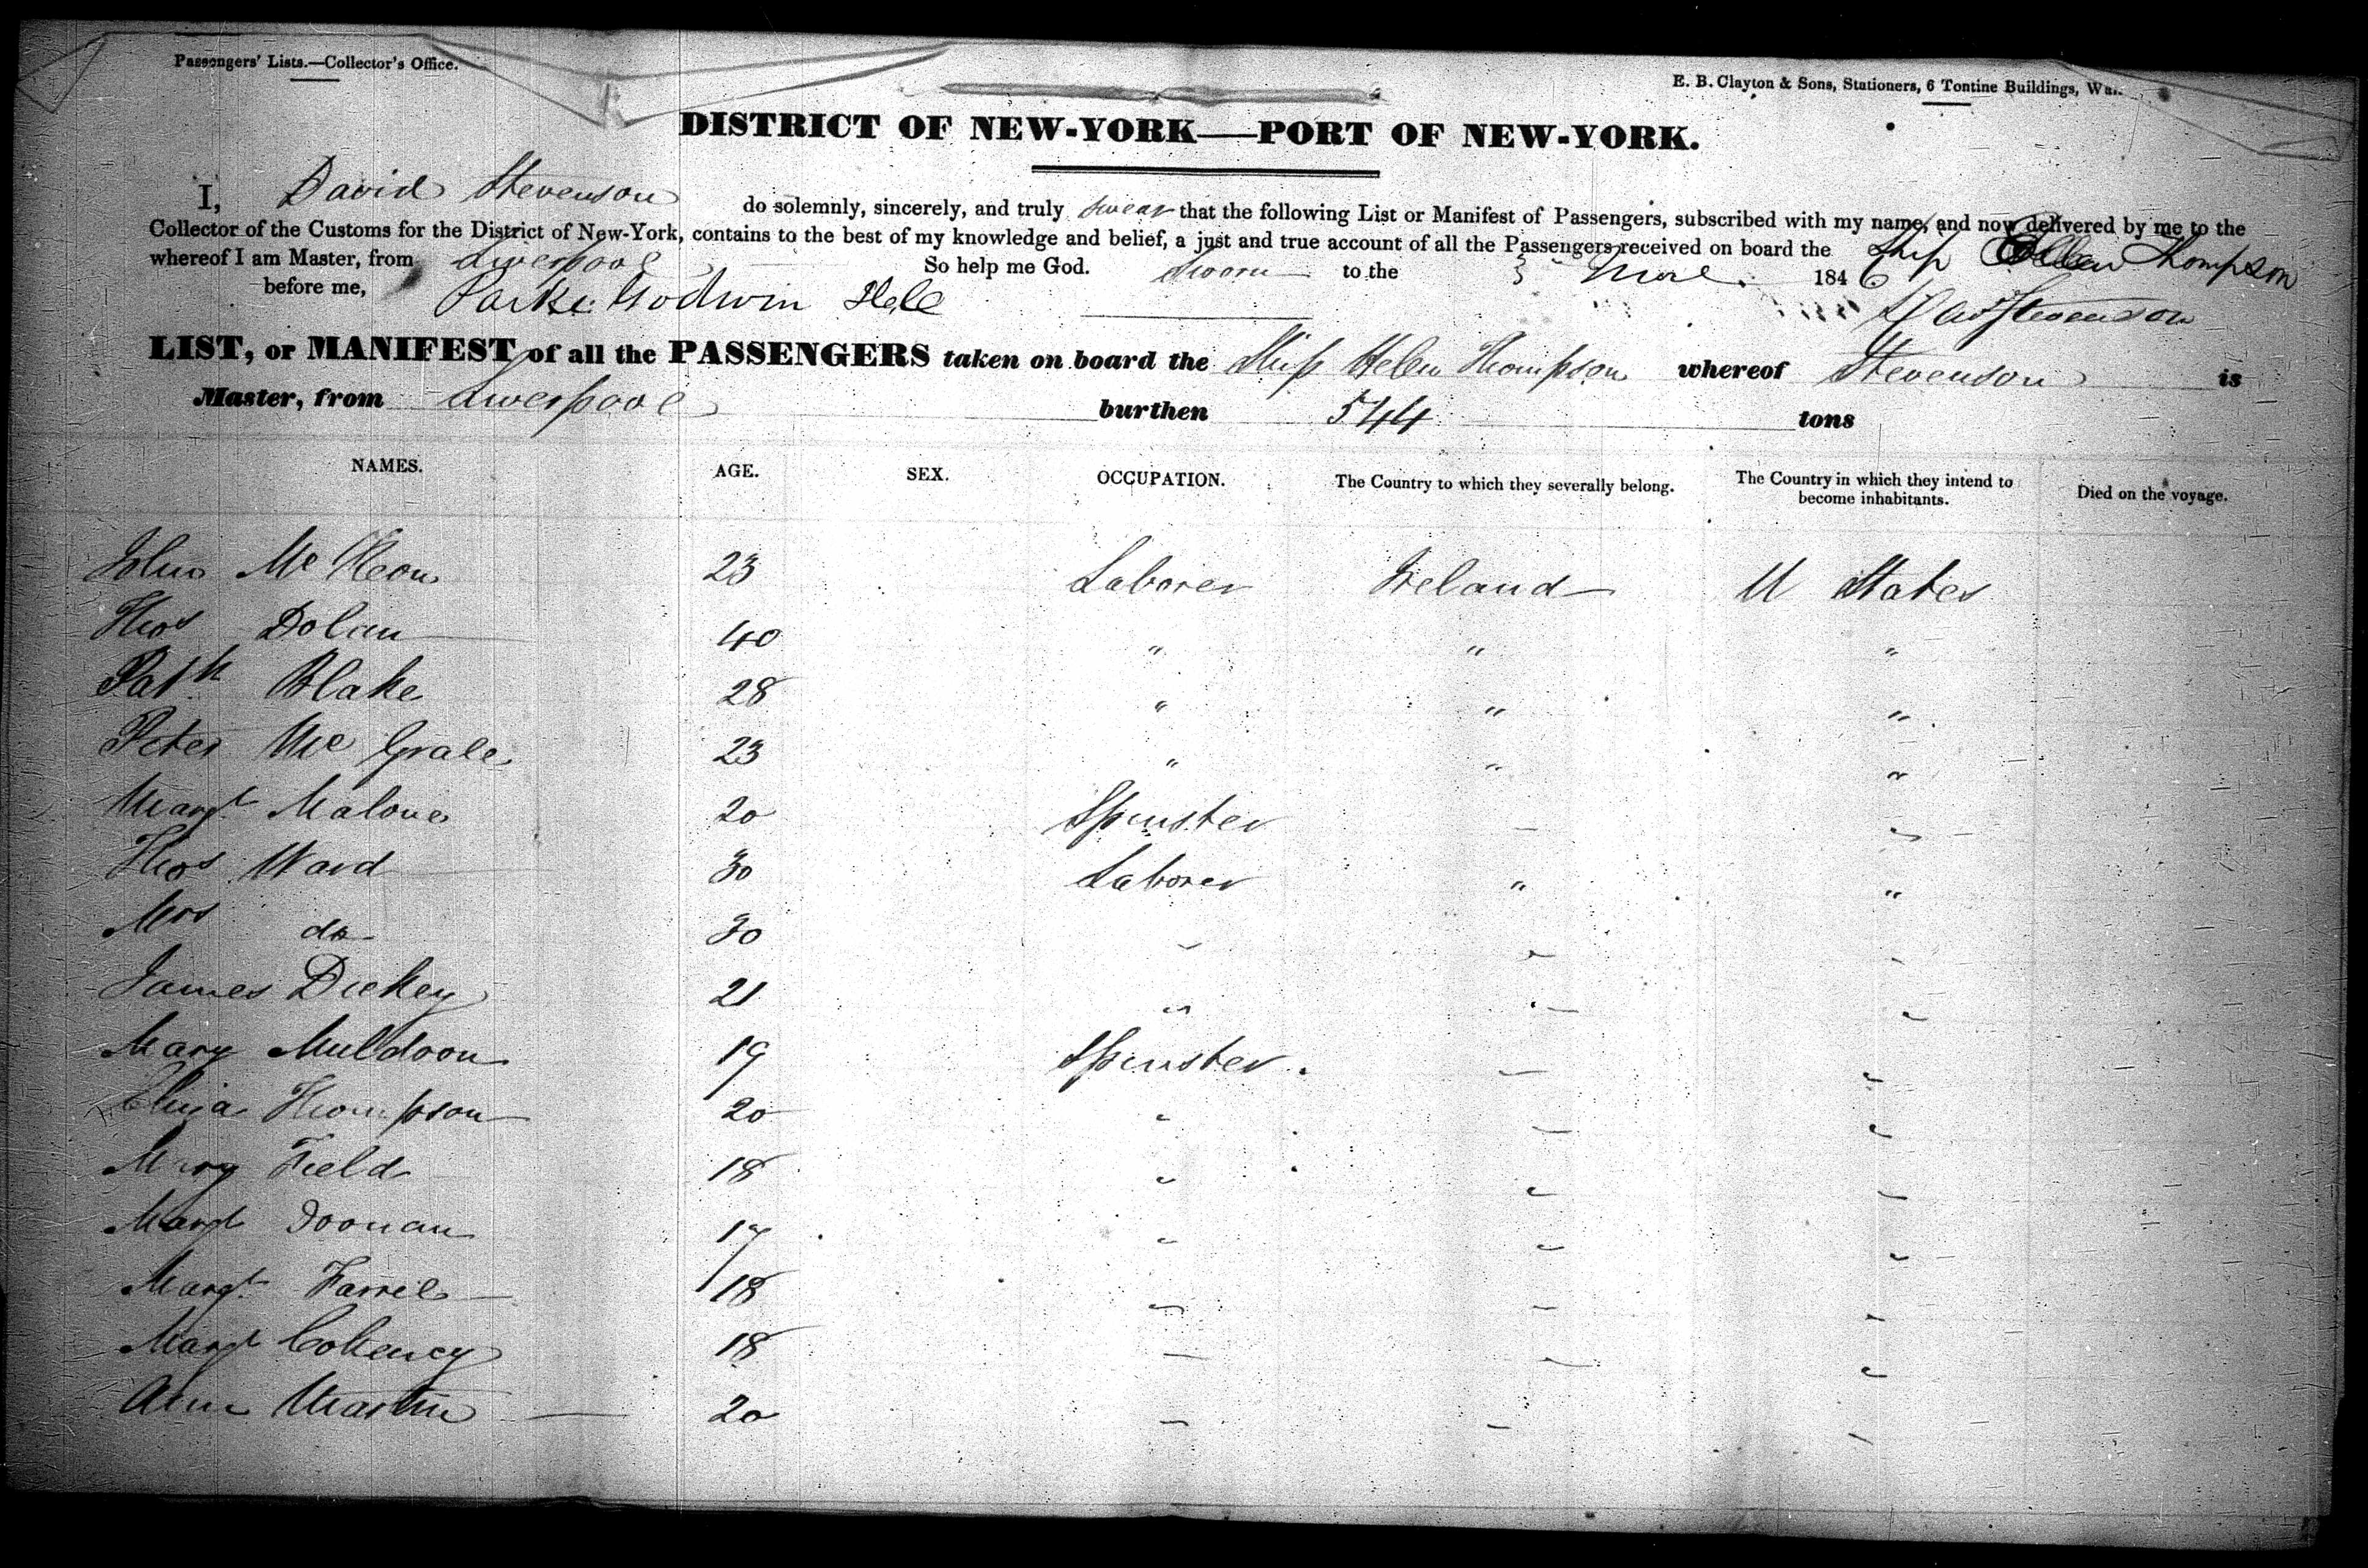 Passengers' Lists.—Collector's Office.
E. B. Clayton & Sons, Stationers, 6 Tontine Buildings,
DISTRICT OF NEW-YORK—PORT OF NEW-YORK.
I, David Stevenson do solemnly, sincerely, and truly swear that the following List or Manifest of Passengers, subscribed with my name, and now delivered by me to the
Collector of the Customs for the District of New-York, contains to the best of my knowledge and belief, a just and true account of all the Passengers received on board the Ship Thompson
whereof I am Master, from Liverpool So help me God. Sworn to the 3 1846
before me, Parke Godwin Stevenson
LIST, or MANIFEST of all the PASSENGERS taken on board the Ship Helen Thompson whereof Stevenson is
Master, from Liverpool burthen 544 tons
NAMES. AGE. SEX. OCCUPATION. The Country to which they severally belong. The Country in which they intend to become inhabitants. Died on the voyage.
John Mc Keon 23 Laborer Ireland U States
Thos Dolan 40 " " "
Patk Blake 28 " " "
Peter Mc Grale 23 " " "
Margt Malone 20 Spinster " "
Thos Ward 30 Laborer " "
Mrs do 30 " " "
James Dickey 21 " " "
Mary Muldoon 19 Spinster " "
Eliza Thompson 20 " " "
Mary Field 18 " " "
Margt Noonan 17 " " "
Margt Farrel 18 " " "
Margt 18 " " "
Ann Martin 20 " " "